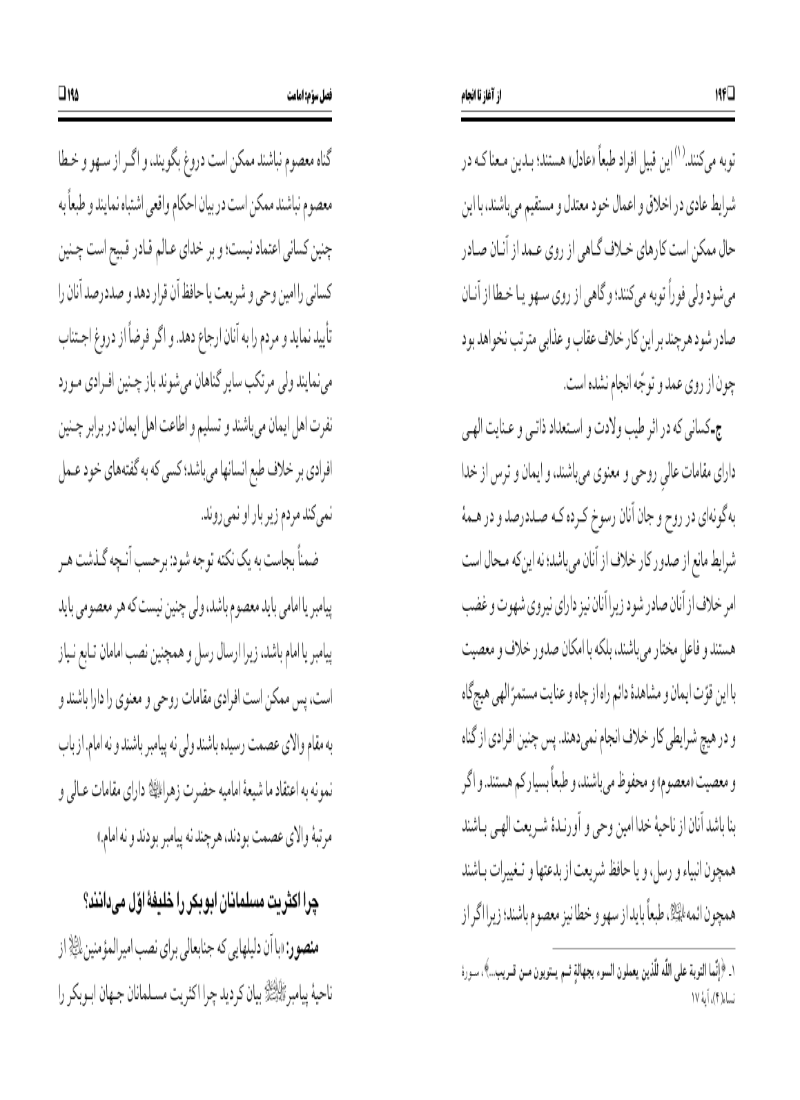 ❑۱۹۴ از آغاز تا انجام
توبه می‌کنند.(۱) این قبیل افراد طبعاً «عادل» هستند؛ بدین معنا که در
شرایط عادی در اخلاق و اعمال خود معتدل و مستقیم می‌باشند، با این
حال ممکن است کارهای خلاف گاهی از روی عمد از آنان صادر
می‌شود ولی فوراً توبه می‌کنند؛ و گاهی از روی سهو یا خطا از آنان
صادر شود هرچند بر این کار خلاف عقاب و عذابی مترتب نخواهد بود
چون از روی عمد و توجّه انجام نشده است.
ج-کسانی که در اثر طیب ولادت و استعداد ذاتی و عنایت الهی
دارای مقامات عالیِ روحی و معنوی می‌باشند، و ایمان و ترس از خدا
به گونه‌ای در روح و جان آنان رسوخ کرده که صددرصد و در همهٔ
شرایط مانع از صدور کار خلاف از آنان می‌باشد؛ نه این‌که محال است
امر خلاف از آنان صادر شود زیرا آنان نیز دارای نیروی شهوت و غضب
هستند و فاعل مختار می‌باشند، بلکه با امکان صدور خلاف و معصیت
با این قوّت ایمان و مشاهدهٔ دائم راه از چاه و عنایت مستمرّ الهی هیچ‌گاه
و در هیچ شرایطی کار خلاف انجام نمی‌دهند. پس چنین افرادی از گناه
و معصیت «معصوم» و محفوظ می‌باشند، و طبعاً بسیار کم هستند. و اگر
بنا باشد آنان از ناحیهٔ خدا امین وحی و آورندهٔ شریعت الهی باشند
همچون انبیاء و رسل، و یا حافظ شریعت از بدعتها و تغییرات باشند
همچون ائمه، طبعاً باید از سهو و خطا نیز معصوم باشند؛ زیرا اگر از
۱- ﴿إنّما التوبة علی اللّه للّذین یعملون السوء بجهالةٍ ثم یتوبون من قریب...﴾، سورهٔ
نساء(۴)، آیهٔ ۱۷
فصل سوّم: امامت ۱۹۵❑
گناه معصوم نباشند ممکن است دروغ بگویند، و اگر از سهو و خطا
معصوم نباشند ممکن است در بیان احکام واقعی اشتباه نمایند و طبعاً به
چنین کسانی اعتماد نیست؛ و بر خدای عالم قادر قبیح است چنین
کسانی را امین وحی و شریعت یا حافظ آن قرار دهد و صددرصد آنان را
تأیید نماید و مردم را به آنان ارجاع دهد. و اگر فرضاً از دروغ اجتناب
می‌نمایند ولی مرتکب سایر گناهان می‌شوند باز چنین افرادی مورد
نفرت اهل ایمان می‌باشند و تسلیم و اطاعت اهل ایمان در برابر چنین
افرادی بر خلاف طبع انسانها می‌باشد؛ کسی که به گفته‌های خود عمل
نمی‌کند مردم زیر بار او نمی‌روند.
ضمناً بجاست به یک نکته توجه شود: برحسب آنچه گذشت هر
پیامبر یا امامی باید معصوم باشد، ولی چنین نیست که هر معصومی باید
پیامبر یا امام باشد، زیرا ارسال رسل و همچنین نصب امامان تابع نیاز
است، پس ممکن است افرادی مقامات روحی و معنوی را دارا باشند و
به مقام والای عصمت رسیده باشند ولی نه پیامبر باشند و نه امام. از باب
نمونه به اعتقاد ما شیعهٔ امامیه حضرت زهرا دارای مقامات عالی و
مرتبهٔ والای عصمت بودند، هرچند نه پیامبر بودند و نه امام.»
چرا اکثریت مسلمانان ابوبکر را خلیفهٔ اوّل می‌دانند؟
منصور: «با آن دلیلهایی که جنابعالی برای نصب امیرالمؤمنین از
ناحیهٔ پیامبر بیان کردید چرا اکثریت مسلمانان جهان ابوبکر را